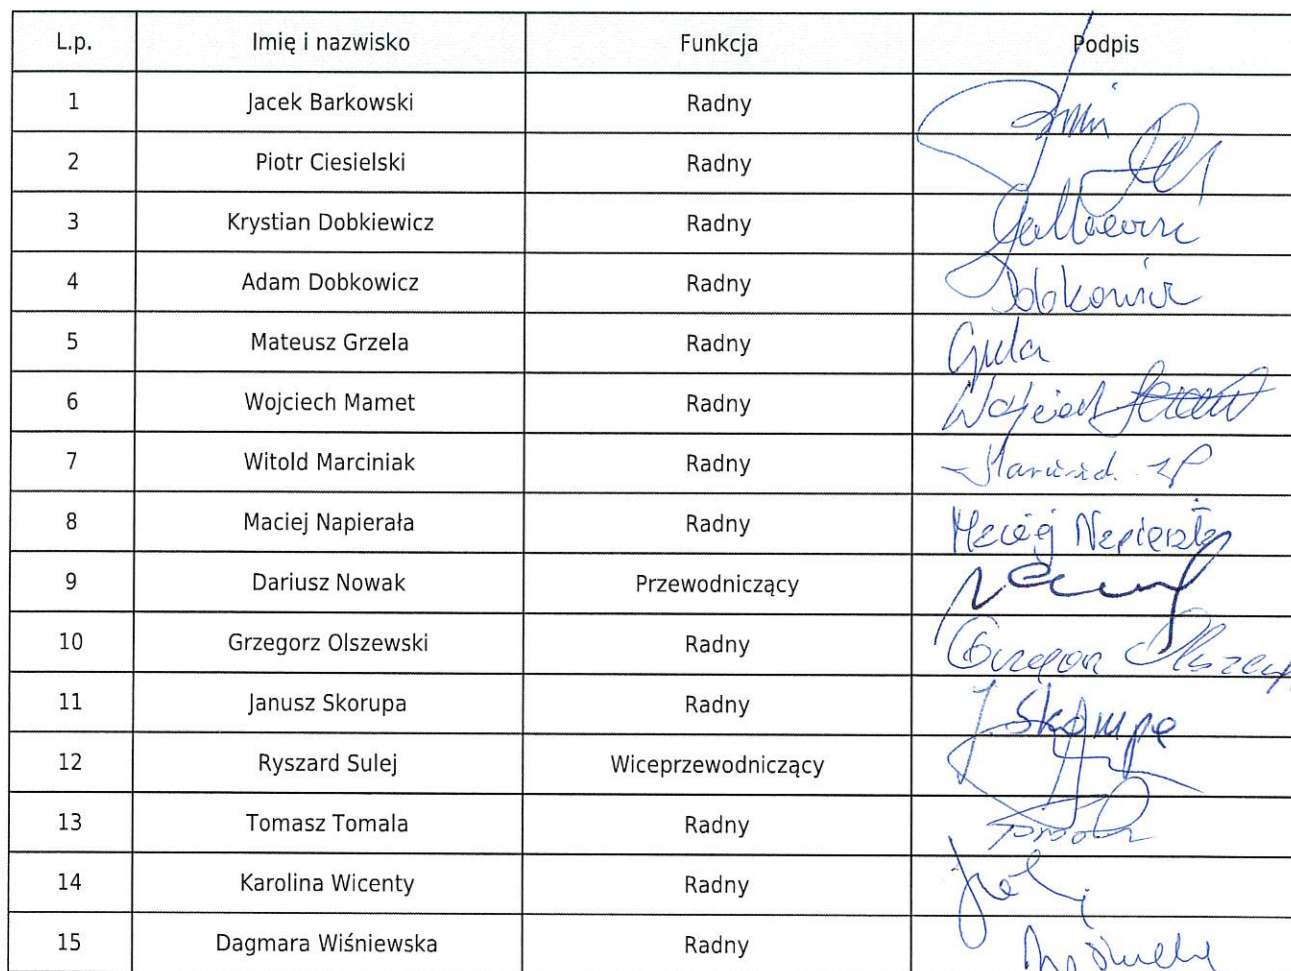 L.p. Imię i nazwisko Funkcja Podpis
1 Jacek Barkowski Radny
2 Piotr Ciesielski Radny
3 Krystian Dobkiewicz Radny
4 Adam Dobkowicz Radny Dobkowicz
5 Mateusz Grzela Radny
6 Wojciech Mamet Radny Wojciech
7 Witold Marciniak Radny
8 Maciej Napierała Radny Maciej Napierała
9 Dariusz Nowak Przewodniczący
10 Grzegorz Olszewski Radny Grzegorz
11 Janusz Skorupa Radny J. Skorupa
12 Ryszard Sulej Wiceprzewodniczący
13 Tomasz Tomala Radny
14 Karolina Wicenty Radny
15 Dagmara Wiśniewska Radny